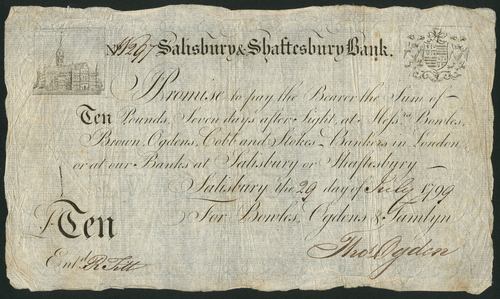 No. W297 Salisbury & Shaftesbury Bank.
I Promise to pay the Bearer the Sum of
Ten Pounds, Seven days after Sight, at Messrs. Bowles,
Brown, Ogdens, Cobb and Stokes Bankers in London
or at our Banks at Salisbury or Shaftesbury
Salisbury the 29 day of July 1799
For Bowles, Ogdens & Tamlyn
£ Ten
Thos. Ogden
Entd. R. Titt